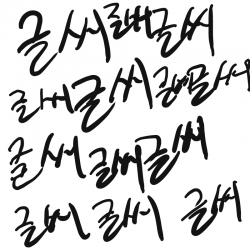 글씨글씨글씨
글씨글씨글씨글씨
글씨글씨글씨
글씨 글씨 글씨